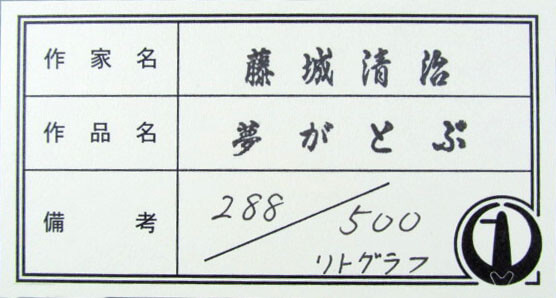 作家名 藤城清治
作品名 夢がとぶ
備考 288/500
リトグラフ